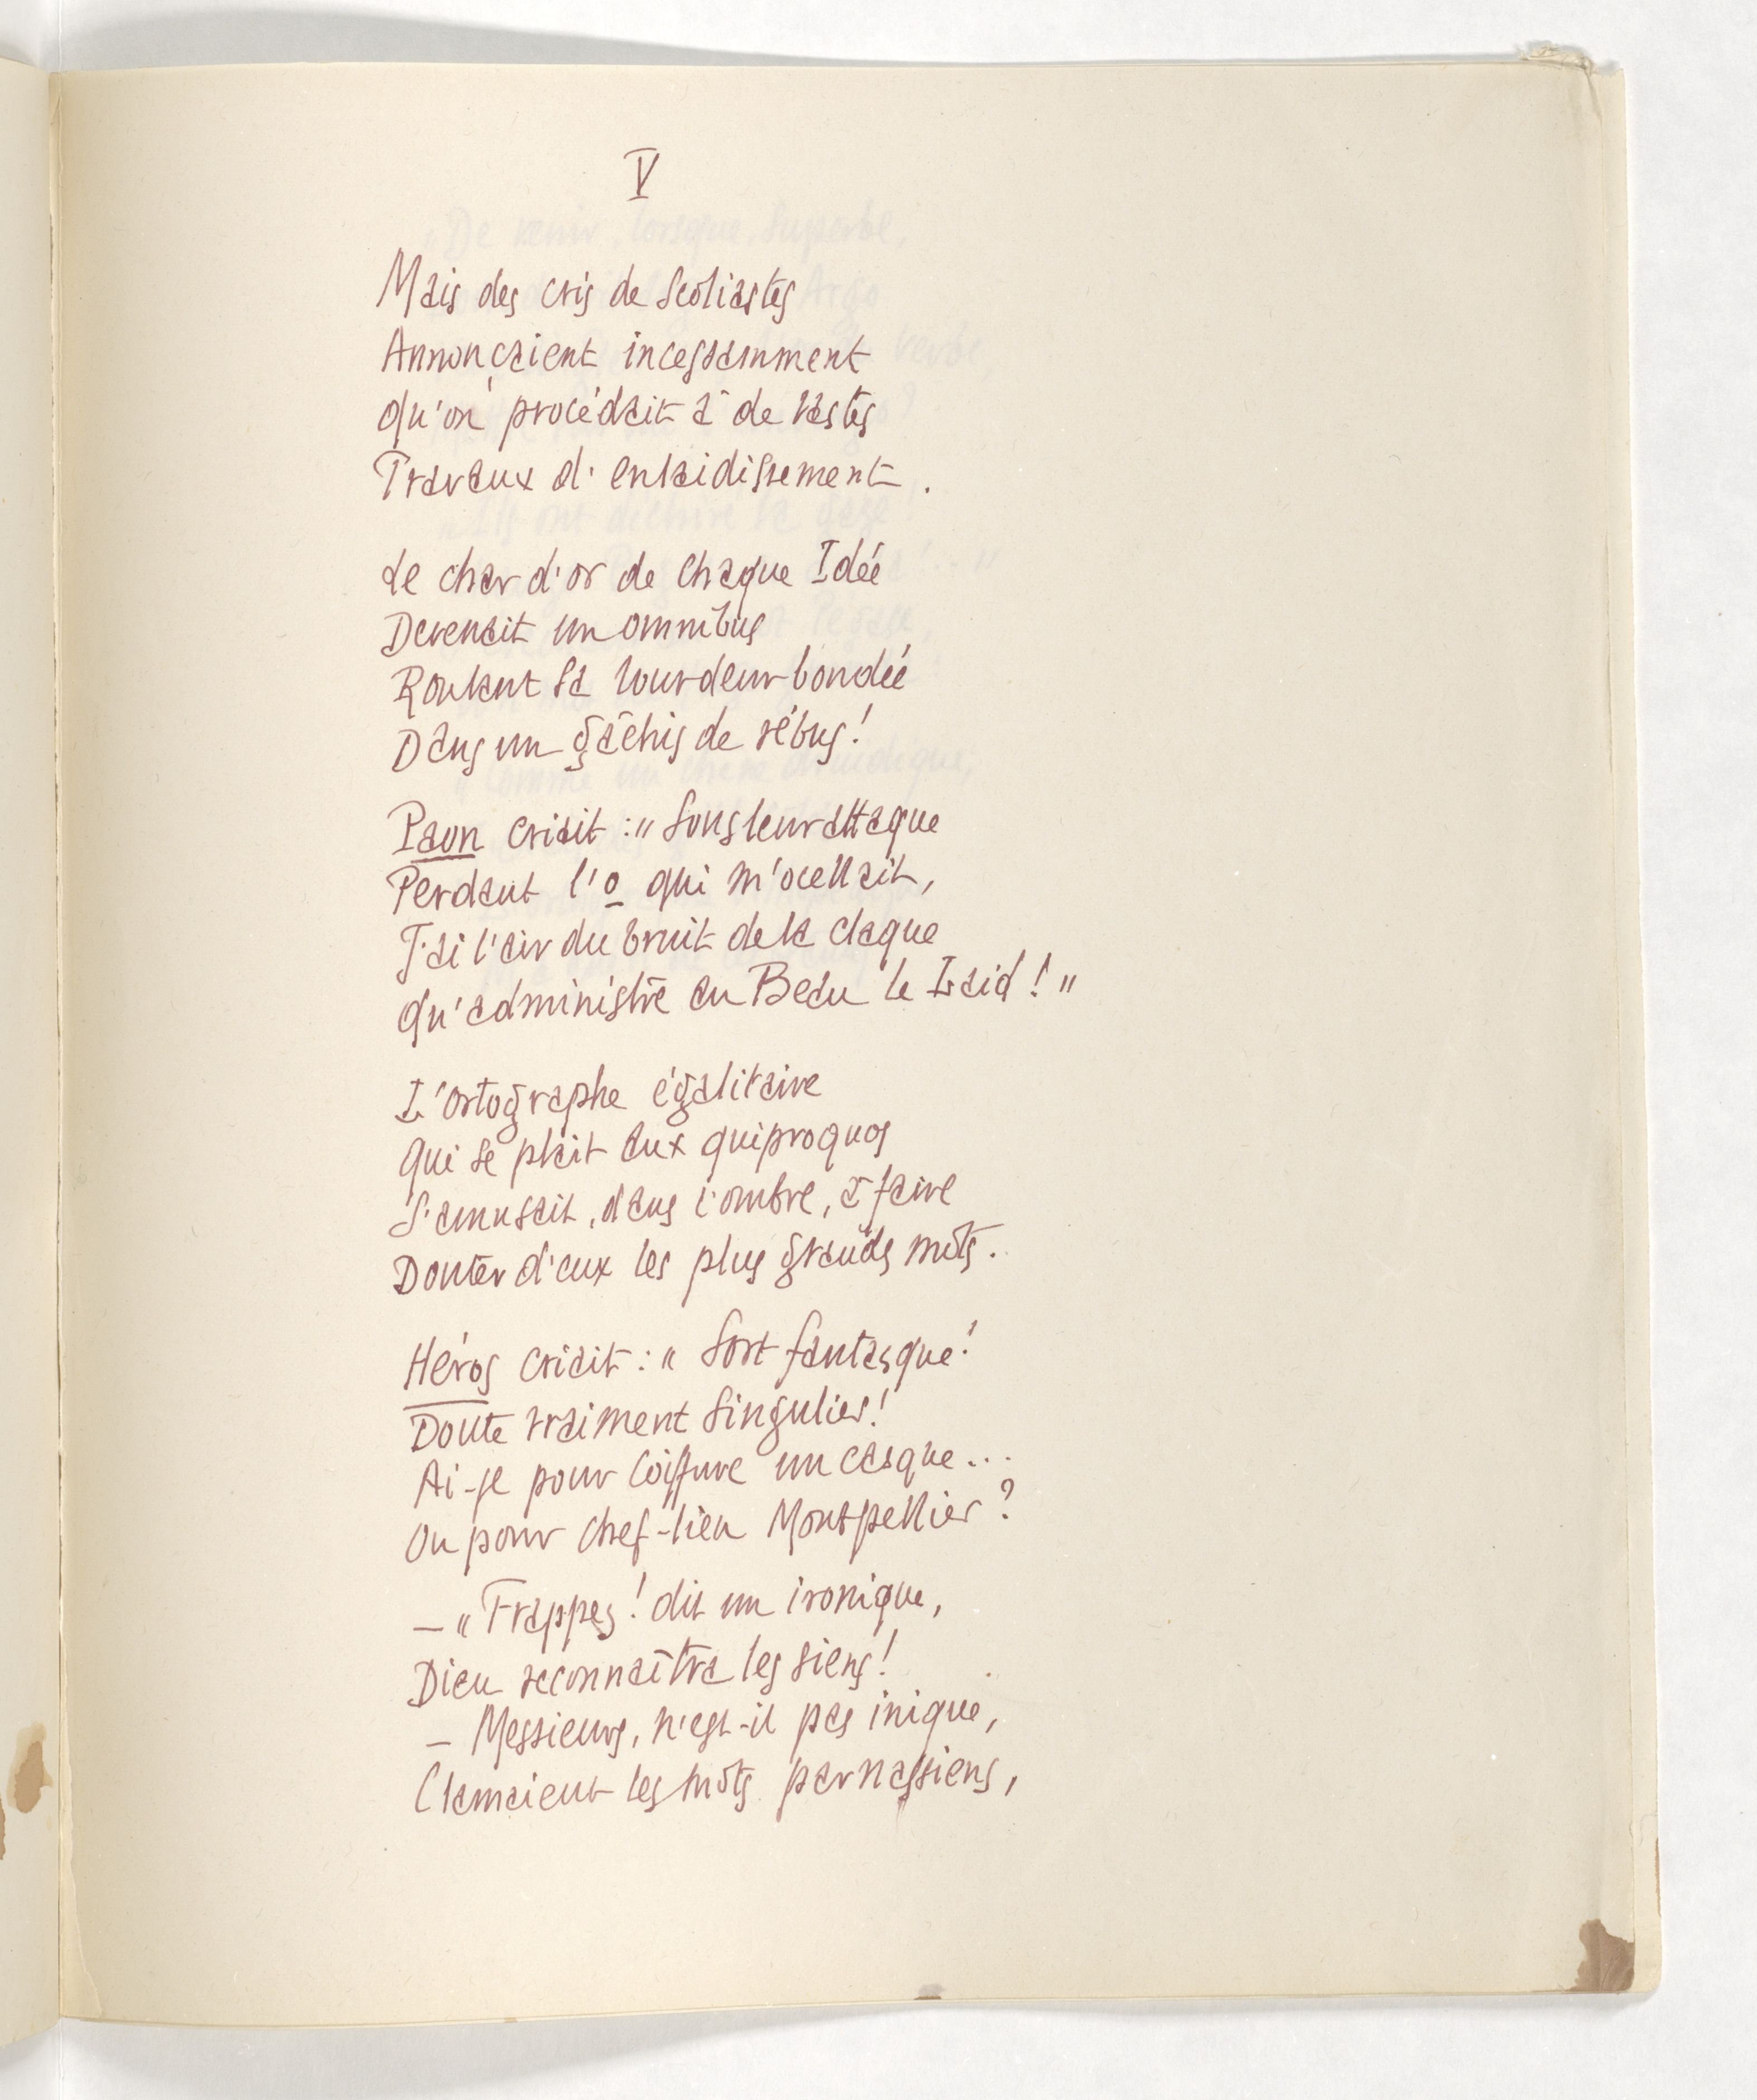 V
Mais des cris de Scoliastes
Annonçaient incessamment
Qu'on procédait à de vastes
Travaux d'enlaidissement.
Le char d'or de chaque Idée
Devenait un omnibus
Roulant sa lourdeur bondée
Dans un gâchis de rébus!
Paon criait : " Sous leur attaque
Perdant l'o qui m'ocellait,
J'ai l'air du bruit de la claque
Qu'administre au Beau le Laid! "
L'ortographe égalitaire
Qui se plaît aux quiproquos
S'amusait, dans l'ombre, à faire
Douter d'eux les plus grands mots.
Héros criait : " Sort fantasque!
Doute vraiment singulier!
Ai-je pour coiffure un casque...
Ou pour chef-lieu Montpellier?
— " Frappez! dit un ironique,
Dieu reconnaîtra les siens!
— Messieurs, n'est-il pas inique,
Clamaient les mots parnassiens,